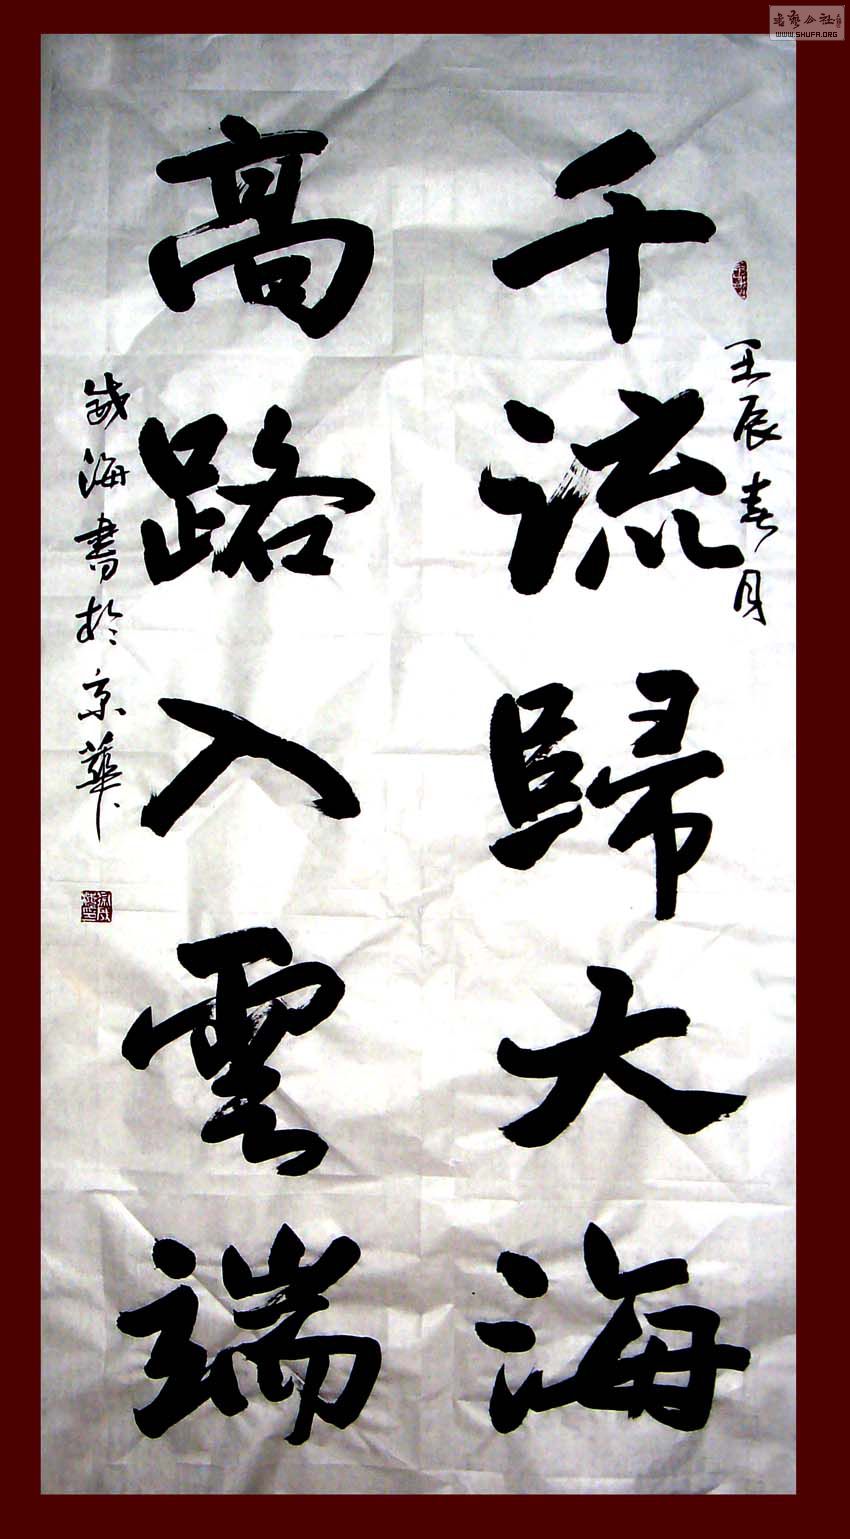 壬辰春月
千流歸大海
高路入雲端
海書於京華
書藝公社
WWW.SHUFA.ORG